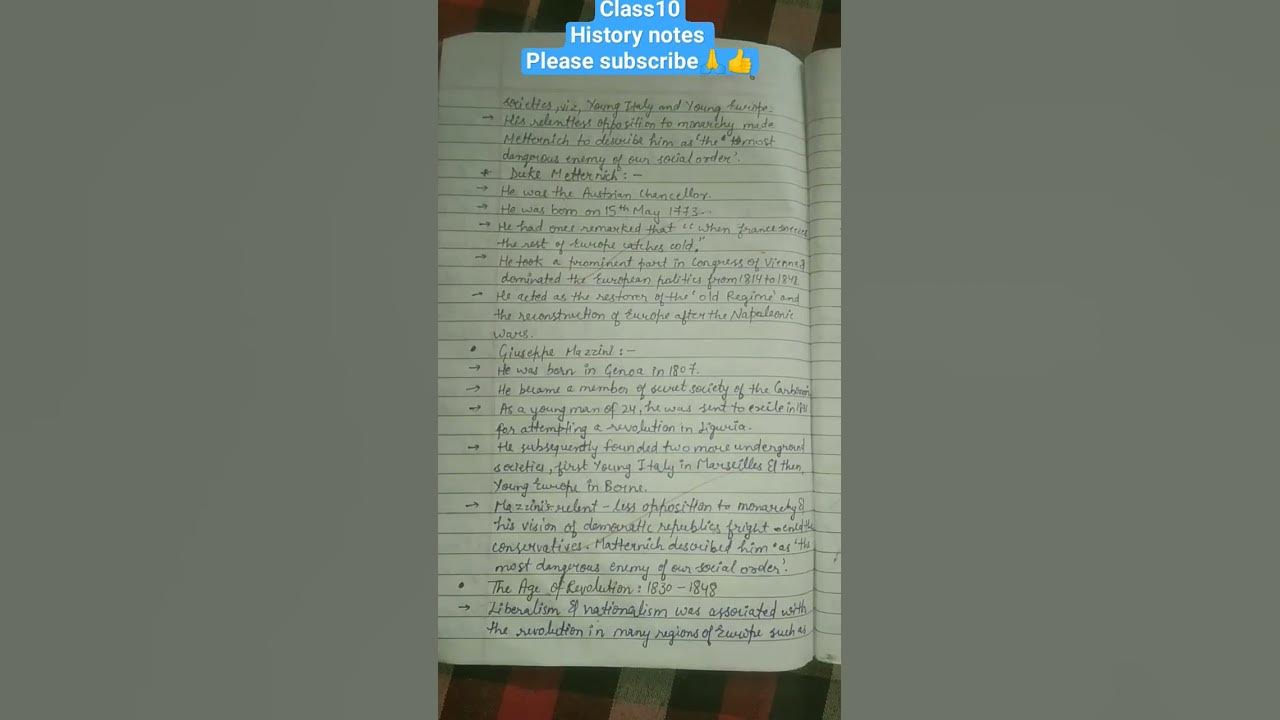 Class10
History notes
Please subscribe🙏👍
societies, viz, Young Italy and Young Europe.
→ His relentless opposition to monarchy made
Metternich to describe him as 'the most
dangerous enemy of our social order'.
* Duke Metternich :-
→ He was the Austrian Chancellor.
→ He was born on 15th May 1773.
→ He had ones remarked that "when france
the rest of Europe catches cold."
→ He took a prominent part in Congress of Vienna &
dominated the European politics from 1814 to 1848.
→ He acted as the restorer of the 'old Regime' and
the reconstruction of Europe after the Napaleonic
wars.
• Giuseppe Mazzini :-
→ He was born in Genoa in 1807.
→ He became a member of secret society of the
→ As a young man of 24, he was sent to exile in
for attempting a revolution in Liguria.
→ He subsequently founded two more underground
societies, first Young Italy in Marseilles & then,
Young Europe in Borne.
→ Mazzini's relent-less opposition to monarchy &
his vision of democratic republics fright-ened the
conservatives. Matternich described him as 'the
most dangerous enemy of our social order'.
• The Age of Revolution : 1830-1848
→ Liberalism & nationalism was associated with
the revolution in many regions of Europe such as